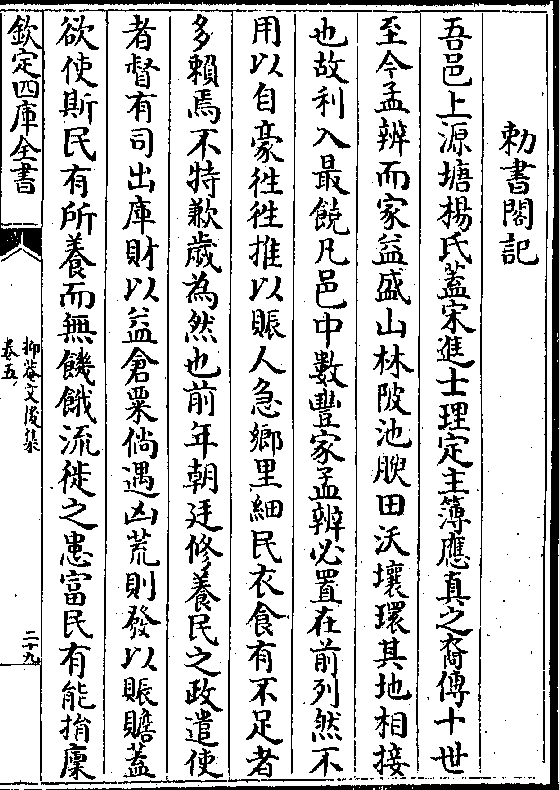 勅書閣記
吾邑上源塘楊氏蓋宋進士理定主簿應真之裔傳十世
至今孟辨而家益盛山林陂池腴田沃壤環其地相接
也故利入最饒凡邑中數豐家孟辨必置在前列然不
用以自豪徃徃推以賑人急鄉里細民衣食有不足者
多賴焉不特歉歲為然也前年朝廷修養民之政遣使
者督有司出庫財以益倉粟倘遇凶荒則發以賑贍蓋
欲使斯民有所養而無饑餓流徙之患富民有能捐廩
欽定四庫全書
抑菴文後集
卷五
二十九